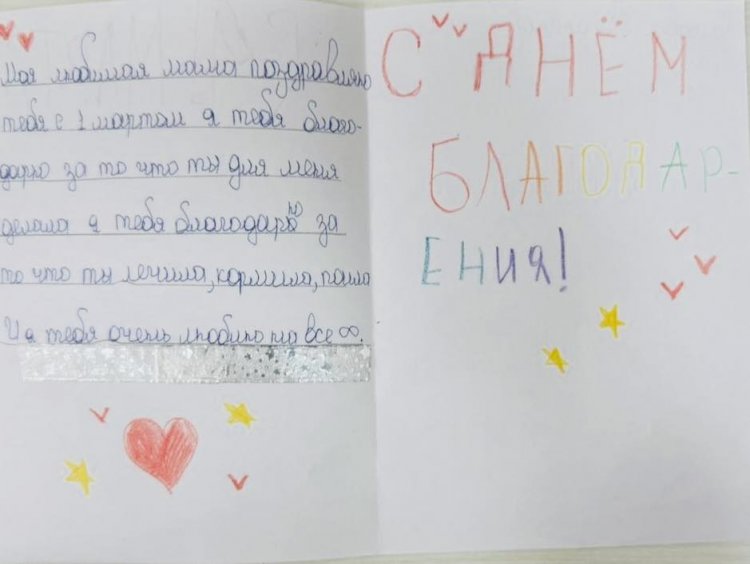 Моя любимая мама поздравляю
тебя с 1 мартом я тебя благо-
дарю за то что ты для меня
делала я тебя благодарю за
то что ты лечила, кормила, поила
И я тебя очень люблю на все ∞.
С ДНЁМ
БЛАГОДАР-
ЕНИЯ!